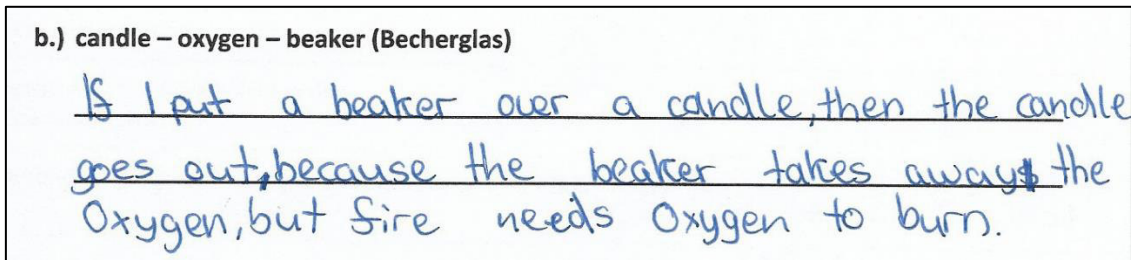 b.) candle – oxygen – beaker (Becherglas)
If I put a beaker over a candle, then the candle
goes out, because the beaker takes away the
Oxygen, but fire needs Oxygen to burn.